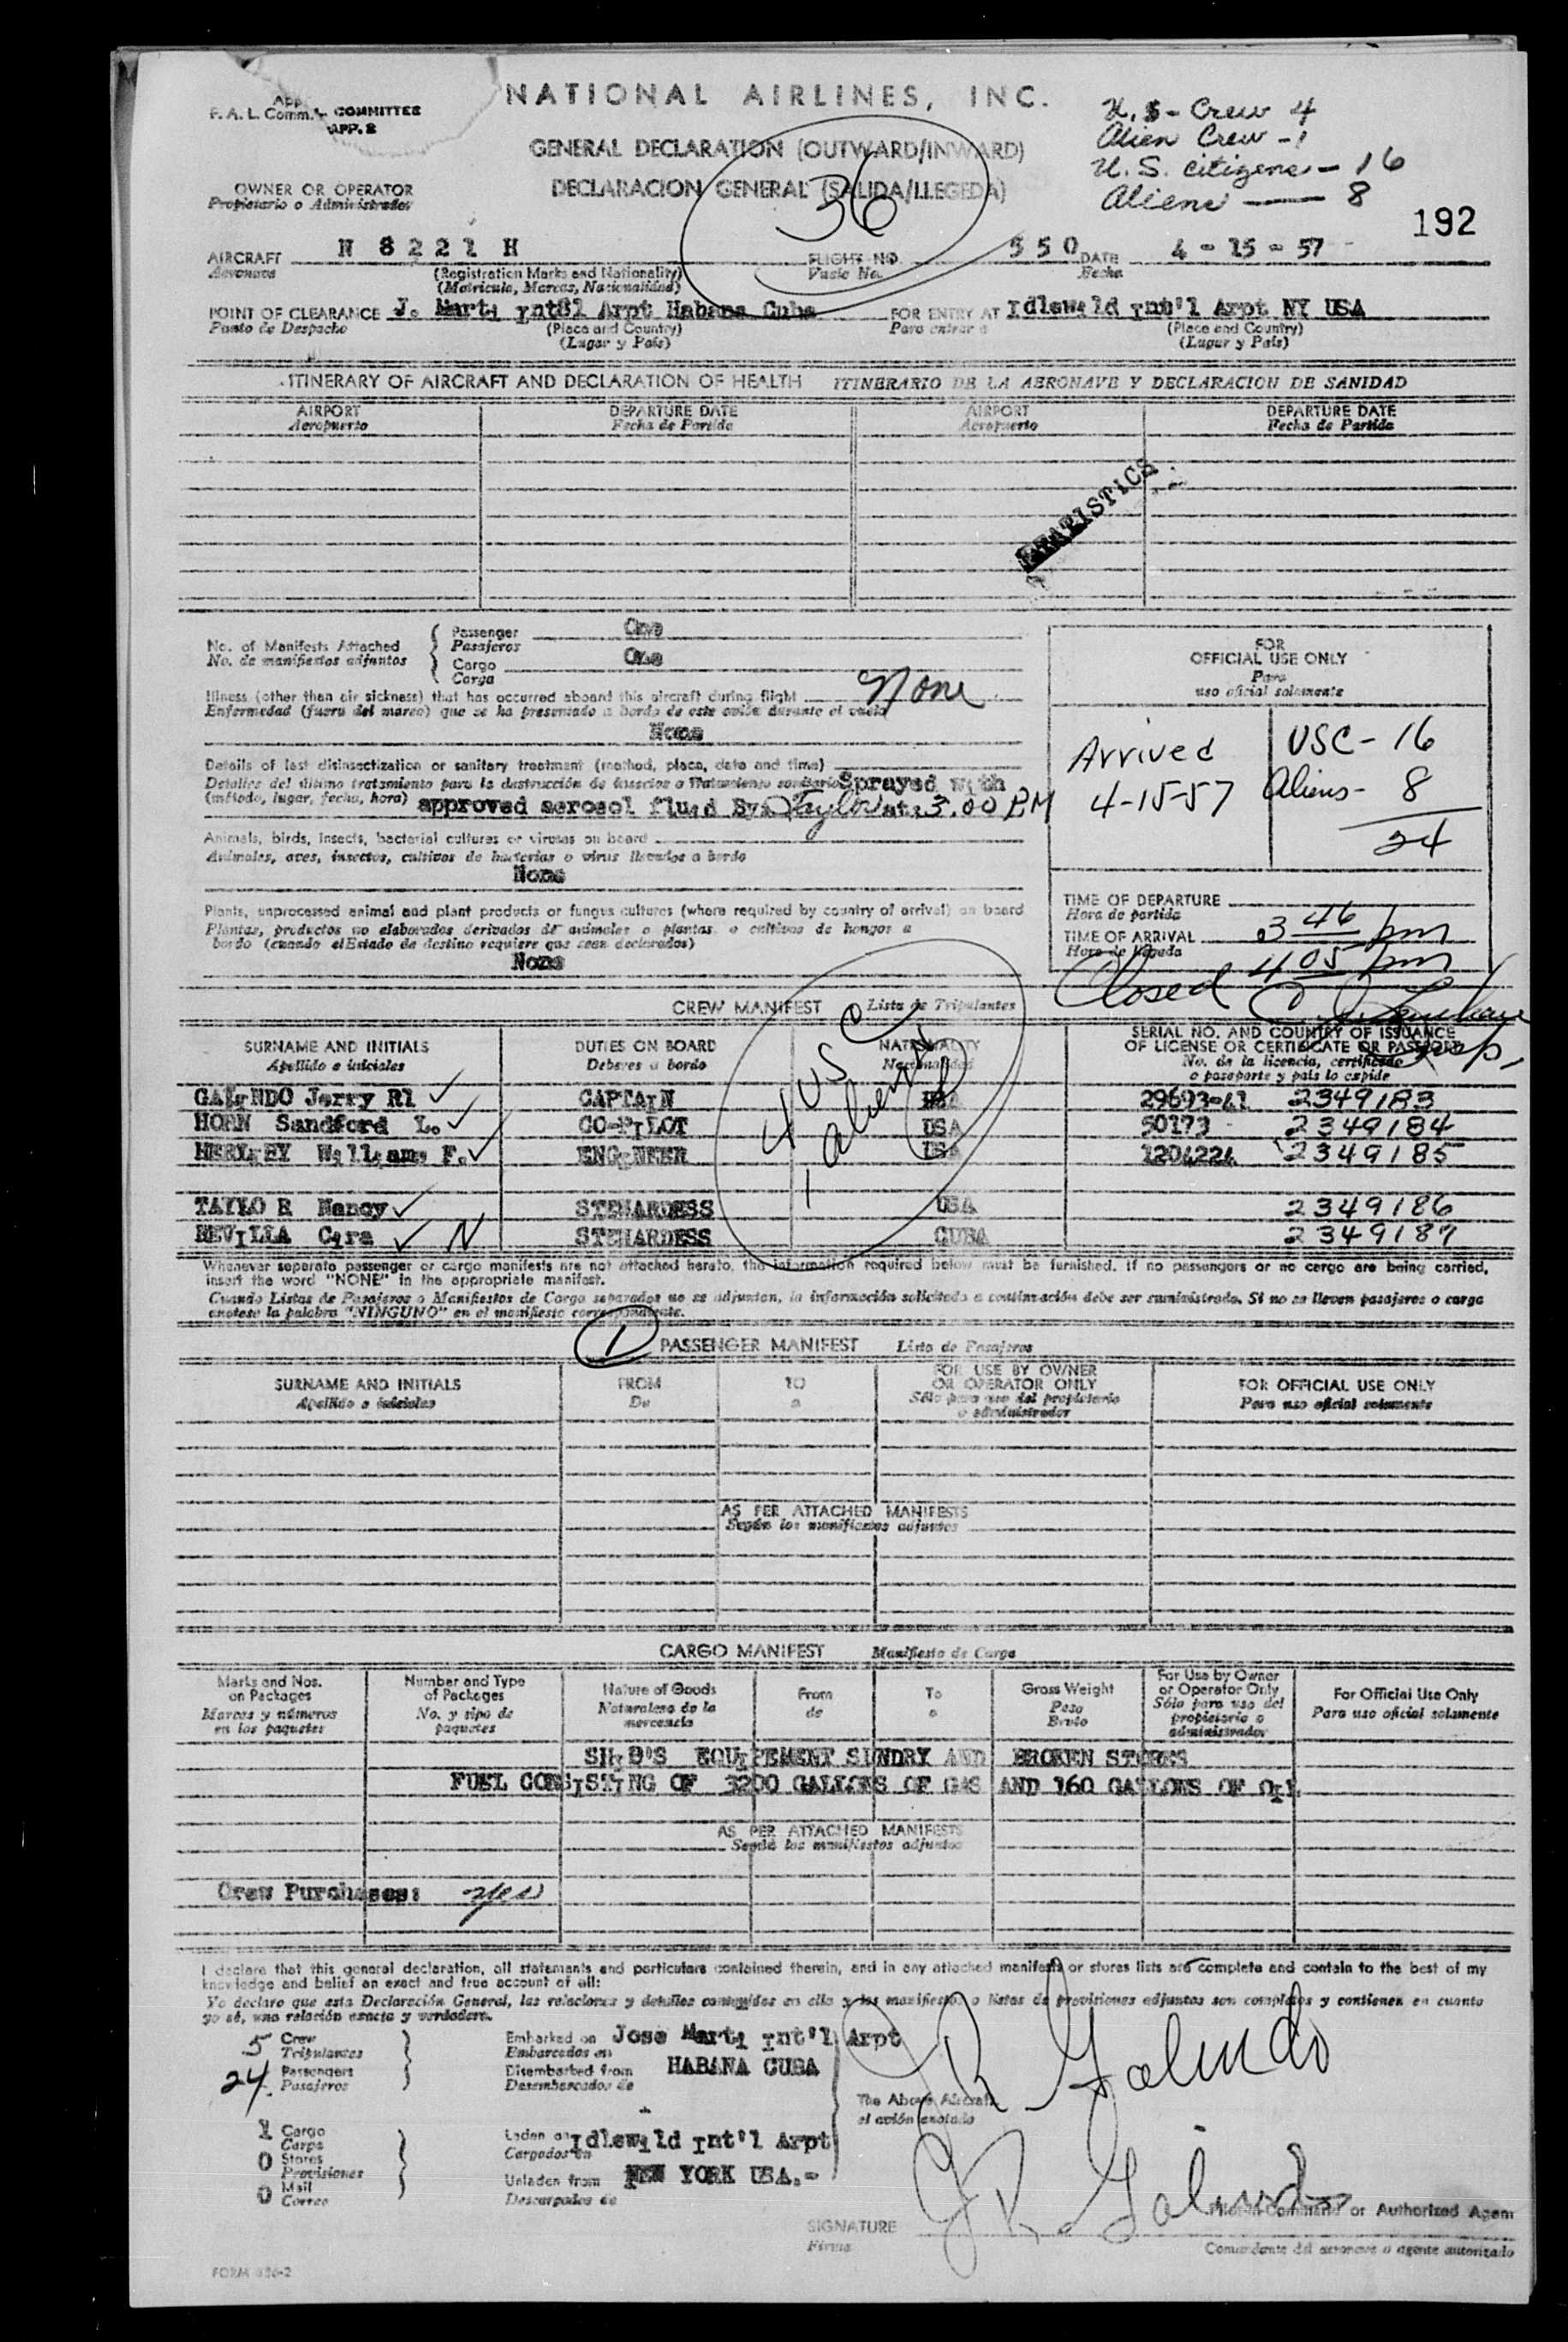 NATIONAL AIRLINES, INC.
F. A. L. Comm. COMMITTEE
APP. 2
GENERAL DECLARATION (OUTWARD/INWARD)
DECLARACION GENERAL (SALIDA/LLEGEDA)
36
U.S - Crew 4
Alien Crew - 1
U.S. citizens - 16
Aliens — 8
192
OWNER OR OPERATOR
Propietario o Administrador
AIRCRAFT N 8221 H FLIGHT NO. 550 DATE 4 - 15 - 57
Aeronave (Registration Marks and Nationality) Vuelo No. Fecha
(Matricula, Marcas, Nacionalidad)
POINT OF CLEARANCE J. Marti Int'l Arpt Habana Cuba FOR ENTRY AT Idlewild Int'l Arpt NY USA
Punto de Despacho (Place and Country) Para entrar a (Place and Country)
(Lugar y País) (Lugar y País)
ITINERARY OF AIRCRAFT AND DECLARATION OF HEALTH ITINERARIO DE LA AERONAVE Y DECLARACION DE SANIDAD
AIRPORT DEPARTURE DATE AIRPORT DEPARTURE DATE
Aeropuerto Fecha de Partida Aeropuerto Fecha de Partida
STATISTICS
No. of Manifests Attached Passenger One
No. de manifiestos adjuntos Pasajeros
Cargo One
Carga
Illness (other than air sickness) that has occurred aboard this aircraft during flight None
Enfermedad (fuera del mareo) que se ha presentado a bordo de este avión durante el vuelo
None
Details of last disinsectization or sanitary treatment (method, place, date and time)
Detalles del último tratamiento para la destrucción de insectos o Tratamiento sanitario Sprayed with
(método, lugar, fecha, hora) approved aerosol fluid By: Taylor at: 3.00 PM
Animals, birds, insects, bacterial cultures or viruses on board
Animales, aves, insectos, cultivos de bacterias o virus llevados a bordo
None
Plants, unprocessed animal and plant products or fungus cultures (where required by country of arrival) on board
Plantas, productos no elaborados derivados de animales o plantas, o cultivos de hongos a
bordo (cuando el Estado de destino requiere que sean declarados)
None
FOR
OFFICIAL USE ONLY
Para
uso oficial solamente
Arrived
4-15-57
USC - 16
Aliens - 8
24
TIME OF DEPARTURE
Hora de partida
3 46 pm
TIME OF ARRIVAL
Hora de llegada
4 05 pm
Closed
Insp.
CREW MANIFEST Lista de Tripulantes
4 USC
1 alien
SURNAME AND INITIALS DUTIES ON BOARD NATIONALITY SERIAL NO. AND COUNTRY OF ISSUANCE
OF LICENSE OR CERTIFICATE OR PASSPORT
Apellido e iniciales Deberes a bordo Nacionalidad No. de la licencia, certificado
o pasaporte y país lo expide
GALINDO Jerry R1 CAPTAIN USA 29693-41 2349183
HORN Sandford L. CO-PILOT USA 50173 2349184
HERLEY William F. ENGINEER USA 1204224 2349185
TAYLOR Nancy STEWARDESS USA 2349186
REVILLA Cira N STEWARDESS CUBA 2349187
Whenever separate passenger or cargo manifests are not attached hereto, the information required below must be furnished. If no passengers or no cargo are being carried,
insert the word "NONE" in the appropriate manifest.
Cuando Listas de Pasajeros o Manifiestos de Carga separados no se adjuntan, la información solicitada a continuación debe ser suministrada. Si no se lleven pasajeros o carga
anotese la palabra "NINGUNO" en el manifiesto correspondiente.
1
PASSENGER MANIFEST Lista de Pasajeros
SURNAME AND INITIALS FROM TO FOR USE BY OWNER
OR OPERATOR ONLY FOR OFFICIAL USE ONLY
Apellido e iniciales De a Sólo para uso del propietario
o administrador Para uso oficial solamente
AS PER ATTACHED MANIFESTS
Según los manifiestos adjuntos
CARGO MANIFEST Manifiesto de Carga
Marks and Nos.
on Packages
Marcas y números
en los paquetes
Number and Type
of Packages
No. y tipo de
paquetes
Nature of Goods
Naturaleza de la
mercancía
From
de
To
a
Gross Weight
Peso
Bruto
For Use by Owner
or Operator Only
Sólo para uso del
propietario o
administrador
For Official Use Only
Para uso oficial solamente
SHIP'S EQUIPEMENT SUNDRY AND BROKEN STORES
FUEL CONSISTING OF 3200 GALLONS OF GAS AND 160 GALLONS OF OIL
AS PER ATTACHED MANIFESTS
Según los manifiestos adjuntos
Crew Purchases: yes
I declare that this general declaration, all statements and particulars contained therein, and in any attached manifests or stores lists are complete and contain to the best of my
knowledge and belief an exact and true account of all:
Yo declaro que esta Declaración General, las relaciones y detalles contenidos en ella y los manifiestos o listas de provisiones adjuntas son completos y contienen en cuanto
yo sé, una relación exacta y verdadera.
5 Crew
Tripulantes
24 Passengers
Pasajeros
Embarked on Jose Marti Int'l Arpt
Embarcados en
Disembarked from HABANA CUBA
Desembarcados de
The Above Aircraft
el avión anotado
JR Galindo
1 Cargo
Carga
0 Stores
Provisiones
0 Mail
Correo
Laden on Idlewild Int'l Arpt
Cargados en
Unladen from NEW YORK USA.-
Descargados de
JR Galindo
SIGNATURE
Firma
Pilot-in-Command or Authorized Agent
Comandante del aeronave o agente autorizado
FORM 856-2